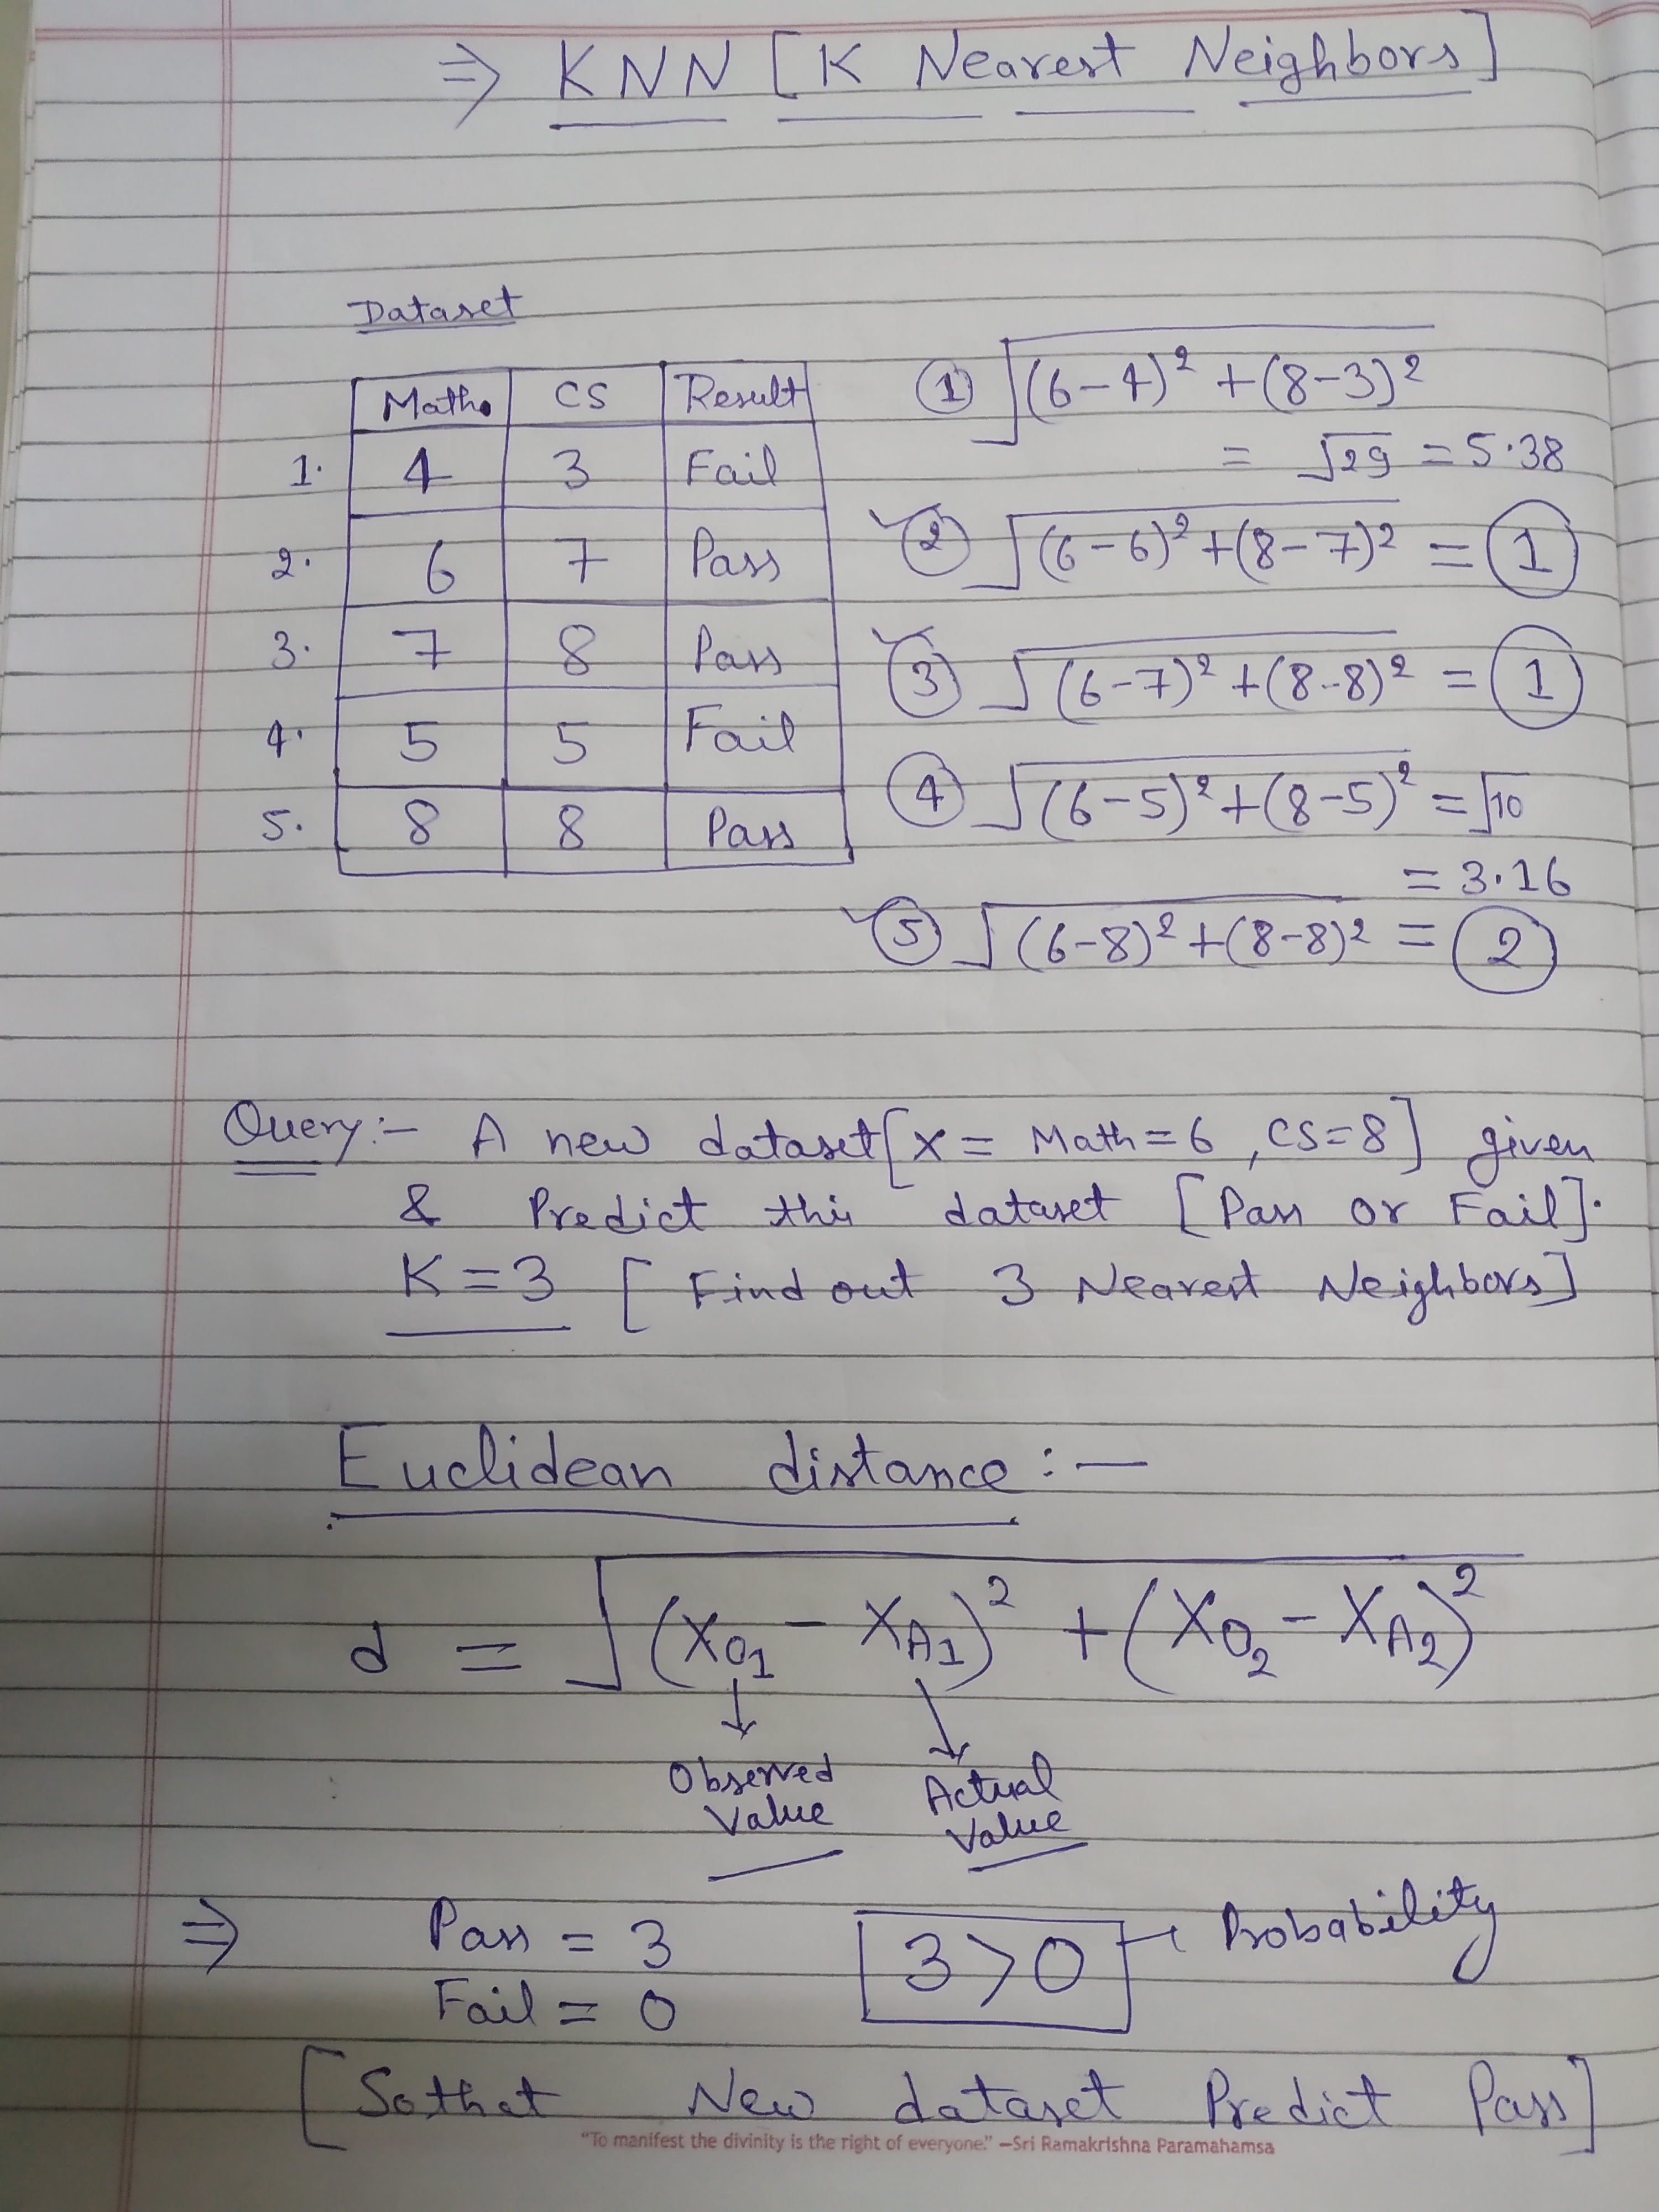 ⇒ KNN [K Nearest Neighbors]
Dataset
Maths CS Result
1. 4 3 Fail
2. 6 7 Pass
3. 7 8 Pass
4. 5 5 Fail
5. 8 8 Pass
① √(6-4)² + (8-3)²
= √29 = 5.38
② √(6-6)² + (8-7)² = 1
③ √(6-7)² + (8-8)² = 1
④ √(6-5)² + (8-5)² = √10
= 3.16
⑤ √(6-8)² + (8-8)² = 2
Query:- A new dataset [X = Math=6, CS=8] given
& Predict this dataset [Pass or Fail].
K=3 [Find out 3 Nearest Neighbors]
Euclidean distance:-
d = √(X₀₁ - X_A1)² + (X₀₂ - X_A2)²
↓ ↓
Observed Actual
Value Value
⇒ Pass = 3 3>0 Probability
Fail = 0
[So that New dataset Predict Pass]
"To manifest the divinity is the right of everyone." —Sri Ramakrishna Paramahamsa